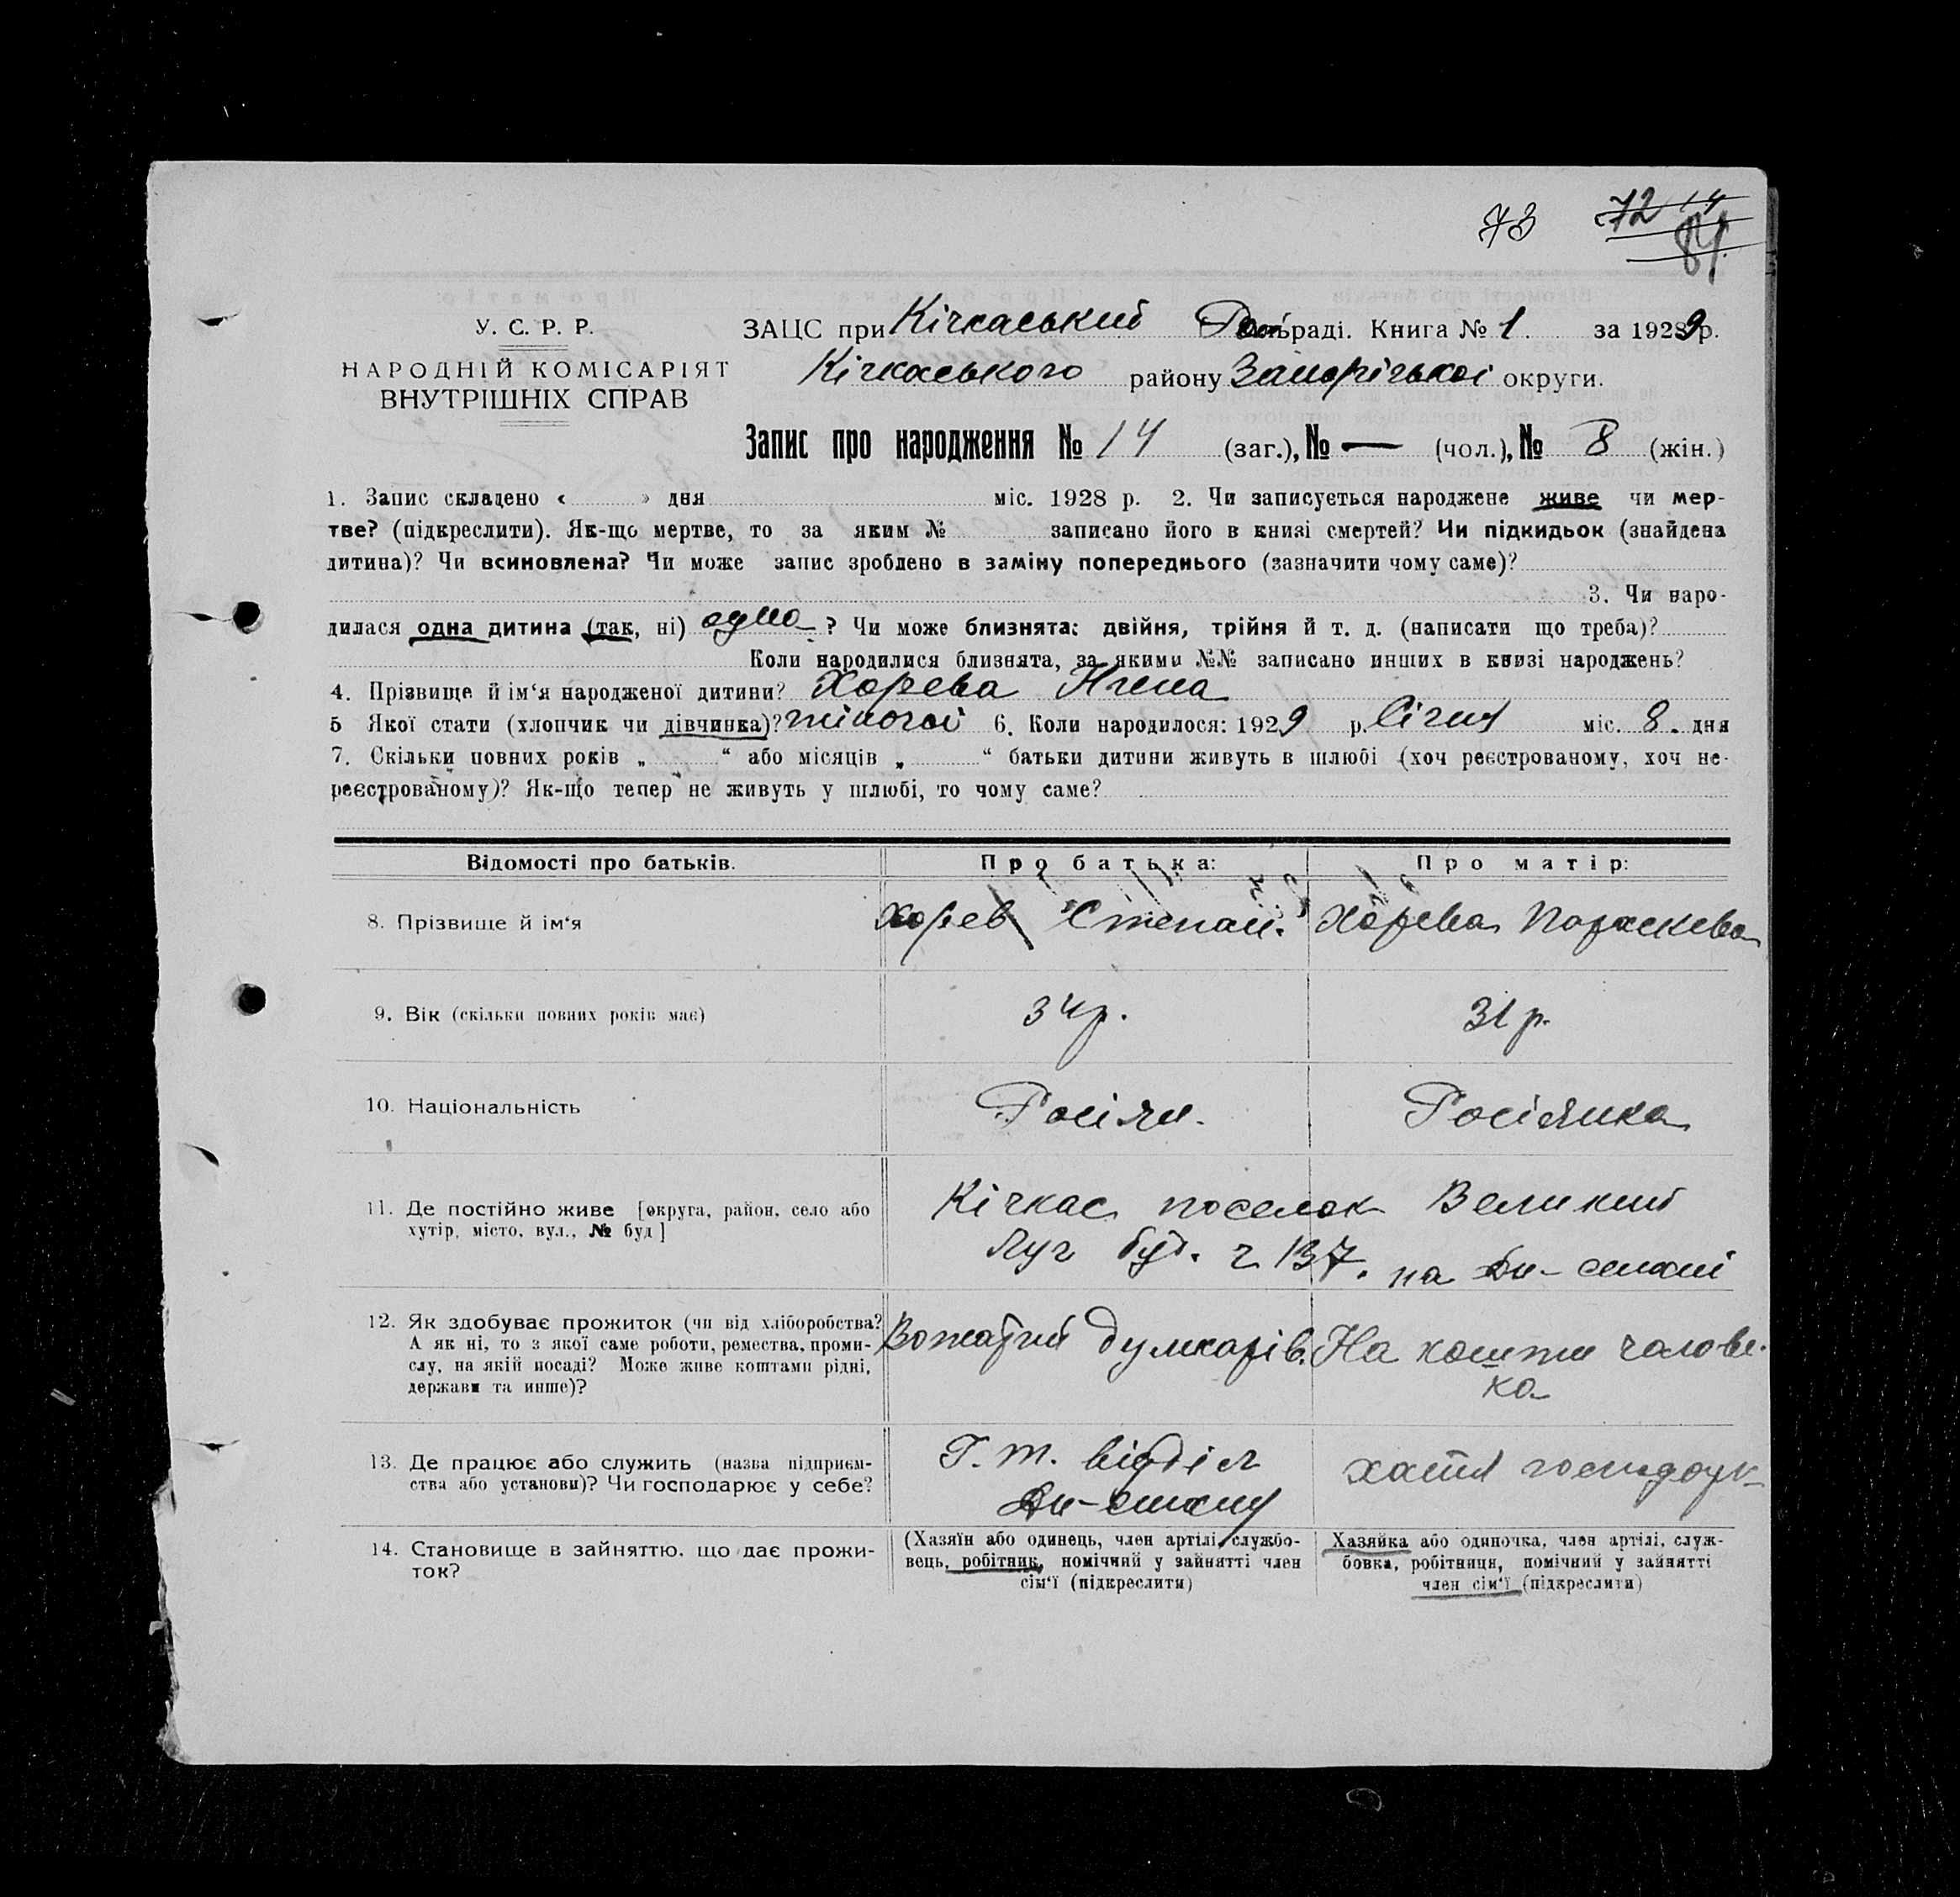 73 72 14
84
У. С. Р. Р.
НАРОДНІЙ КОМІСАРІЯТ
ВНУТРІШНІХ СПРАВ
ЗАЦС при Кічкаський раді. Книга № 1 за 1929 р.
Кічкаського району Запорізькоі округи.
Запис про народження № 14 (заг.), № — (чол.), № 8 (жін.)
1. Запис складено « » дня міс. 1928 р. 2. Чи записується народжене живе чи мер-
тве? (підкреслити). Як-що мертве, то за яким № записано його в книзі смертей? Чи підкидьок (знайдена
дитина)? Чи всиновлена? Чи може запис зроблено в заміну попереднього (зазначити чому саме)?
3. Чи наро-
дилася одна дитина (так, ні) одна ? Чи може близнята: двійня, трійня й т. д. (написати що треба)?
Коли народилися близнята, за якими №№ записано инших в книзі народжень?
4. Прізвище й ім‘я народженої дитини? Хорева
5 Якої стати (хлопчик чи дівчинка)? жіночоі 6. Коли народилося: 1929 р. Січня міс. 8. дня
7. Скільки повних років „ “ або місяців „ “ батьки дитини живуть в шлюбі (хоч реєстрованому, хоч не-
реєстрованому)? Як-що тепер не живуть у шлюбі, то чому саме?
Відомості про батьків. Про батька: Про матір:
8. Прізвище й ім‘я Хорев Степан. Хорева Параскева
9. Вік (скільки повних років має) 34 р. 31 р.
10. Національність Росіян. Росіянка
11. Де постійно живе [округа, район, село або
хутір, місто, вул., № буд]
Кічкас поселок Великий
Луг буд. ч 137. на Дн-стані
12. Як здобуває прожиток (чи від хліборобства?
А як ні, то з якої саме роботи, ремества, проми-
слу, на якій посаді? Може живе коштами рідні,
держави та инше)?
Вожатий На кошти чолове-
ка
13. Де працює або служить (назва підприєм-
ства або установи)? Чи господарює у себе?
Г. т. відділ
хатня
14. Становище в зайняттю, що дає прожи-
ток?
(Хазяїн або одинець, член артілі, службо-
вець, робітник, помічний у зайнятті член
сім‘ї (підкреслити)
Хазяйка або одиночка, член артілі, служ-
бовка, робітниця, помічний у зайнятті
член сім‘ї (підкреслити)